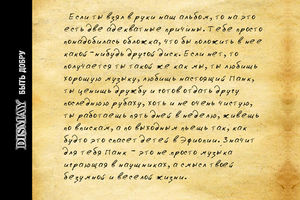 DISMAY БЫТЬ ДОБРУ
Если ты взял в руки наш альбом, то на это
есть две адекватные причины. Тебе просто
понадобилась обложка, что бы положить в нее
какой-нибудь другой диск. Если нет, то
получается ты такой же как мы, ты любишь
хорошую музыку, любишь настоящий Панк,
ты ценишь дружбу и готов отдать другу
последнюю рубаху, хоть и не очень чистую,
ты работаешь пять дней в неделю, живешь
по впискам, а по выходным пьешь так, как
будто это спасет детей в Эфиопии. Значит
для тебя Панк - это не просто музыка
играющая в наушниках, а смысл твоей
безумной и веселой жизни.